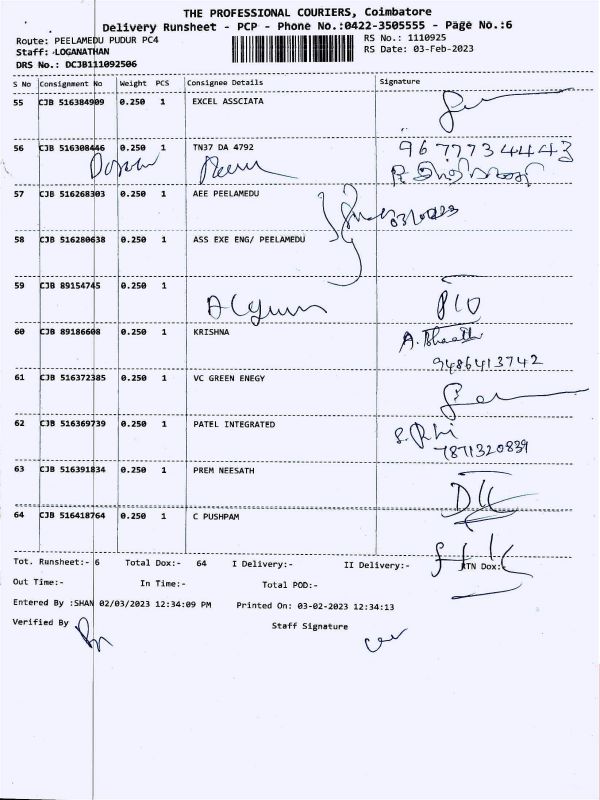 THE PROFESSIONAL COURIERS, Coimbatore
Delivery Runsheet - PCP - Phone No.:0422-3505555 - Page No.:6
Route: PEELAMEDU PUDUR PC4
RS No.: 1110925
Staff: -LOGANATHAN
RS Date: 03-Feb-2023
DRS No.: DCJB111092506
S No Consignment No Weight PCS Consignee Details Signature
55 CJB 516384909 0.250 1 EXCEL ASSCIATA
56 CJB 516308446 0.250 1 TN37 DA 4792 9677734443
57 CJB 516268303 0.250 1 AEE PEELAMEDU
58 CJB 516280638 0.250 1 ASS EXE ENG/ PEELAMEDU
59 CJB 89154745 0.250 1
60 CJB 89186608 0.250 1 KRISHNA
9486413742
61 CJB 516372385 0.250 1 VC GREEN ENEGY
62 CJB 516369739 0.250 1 PATEL INTEGRATED
7871320839
63 CJB 516391834 0.250 1 PREM NEESATH
64 CJB 516418764 0.250 1 C PUSHPAM
Tot. Runsheet:- 6 Total Dox:- 64 I Delivery:- II Delivery:- RTN Dox:-
Out Time:- In Time:- Total POD:-
Entered By :SHAN 02/03/2023 12:34:09 PM Printed On: 03-02-2023 12:34:13
Verified By Staff Signature